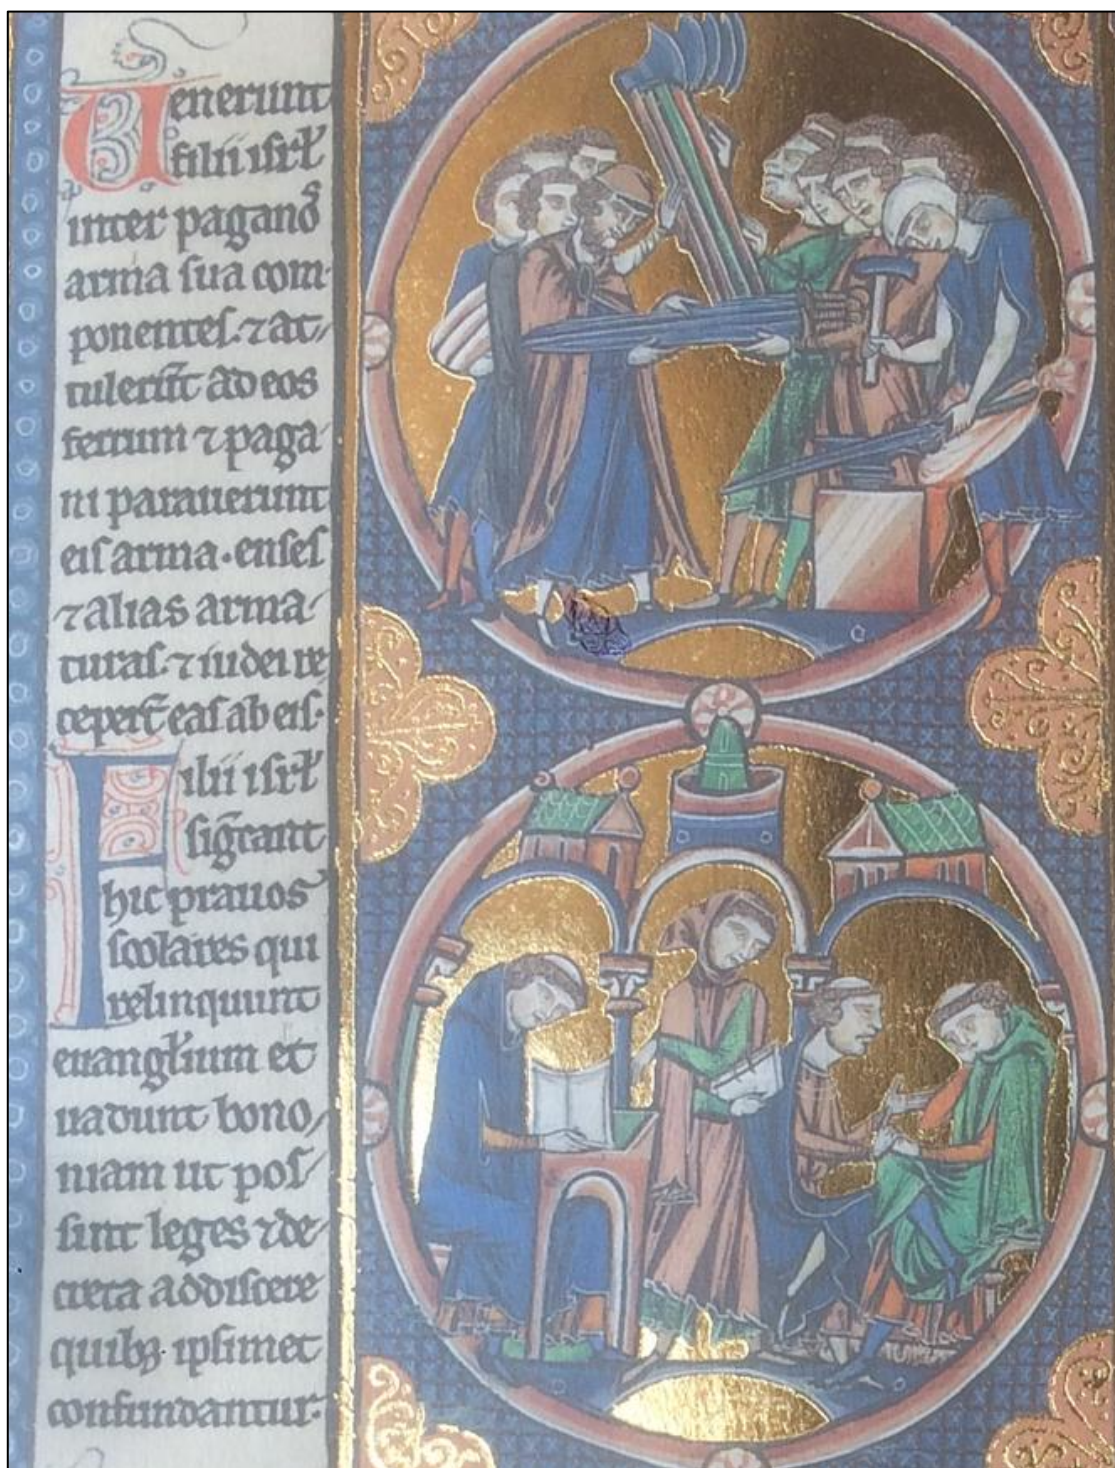 Venerunt
filii isrł
inter paganoˢ
arma sua com-
ponentes. ⁊ at/
tulerūt ad eos
ferrum ⁊ paga-
ni parauerunt
eis arma. enses
⁊ alias arma-
turas. ⁊ iudei re
ceperūt eas ab eis.
Filii isrł
sigᷓcant
hic prauos
scolares qui
relinquunt
euangłium et
uadunt bono/
niam ut pos/
sint leges ⁊ de-
creta addiscere
quibꝫ ipsimet
confundantur.